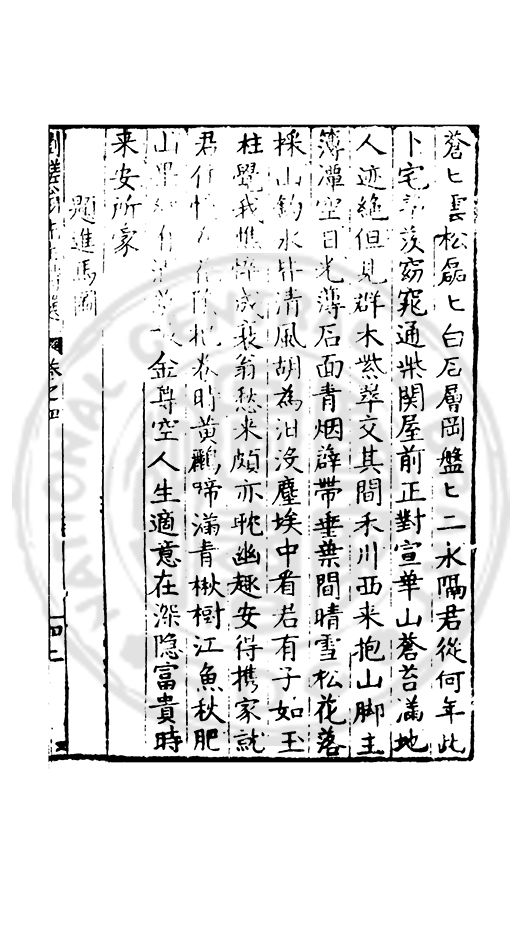 蒼〻雲松磊〻白石層岡盤〻二水隔君從何年此
卜宅茅茨窈窕通柴関屋前正對宣華山蒼苔滿地
人迹絶但見群木紫翠交其間禾川西来抱山脚主
簿潭空日光薄石面青烟薜帶垂葉間晴雪松花落
採山釣水皆清風胡為汨没塵埃中看君有子如玉
柱覺我憔悴成衰翁愁来頗亦耽幽趣安得携家就
君住 花 杷 时黄鸝啼滿青楸樹江魚秋肥
山 金尊空人生適意在深隐富貴時
来安所蒙
題進馬圖
卷之四
NATIONAL CENTRAL